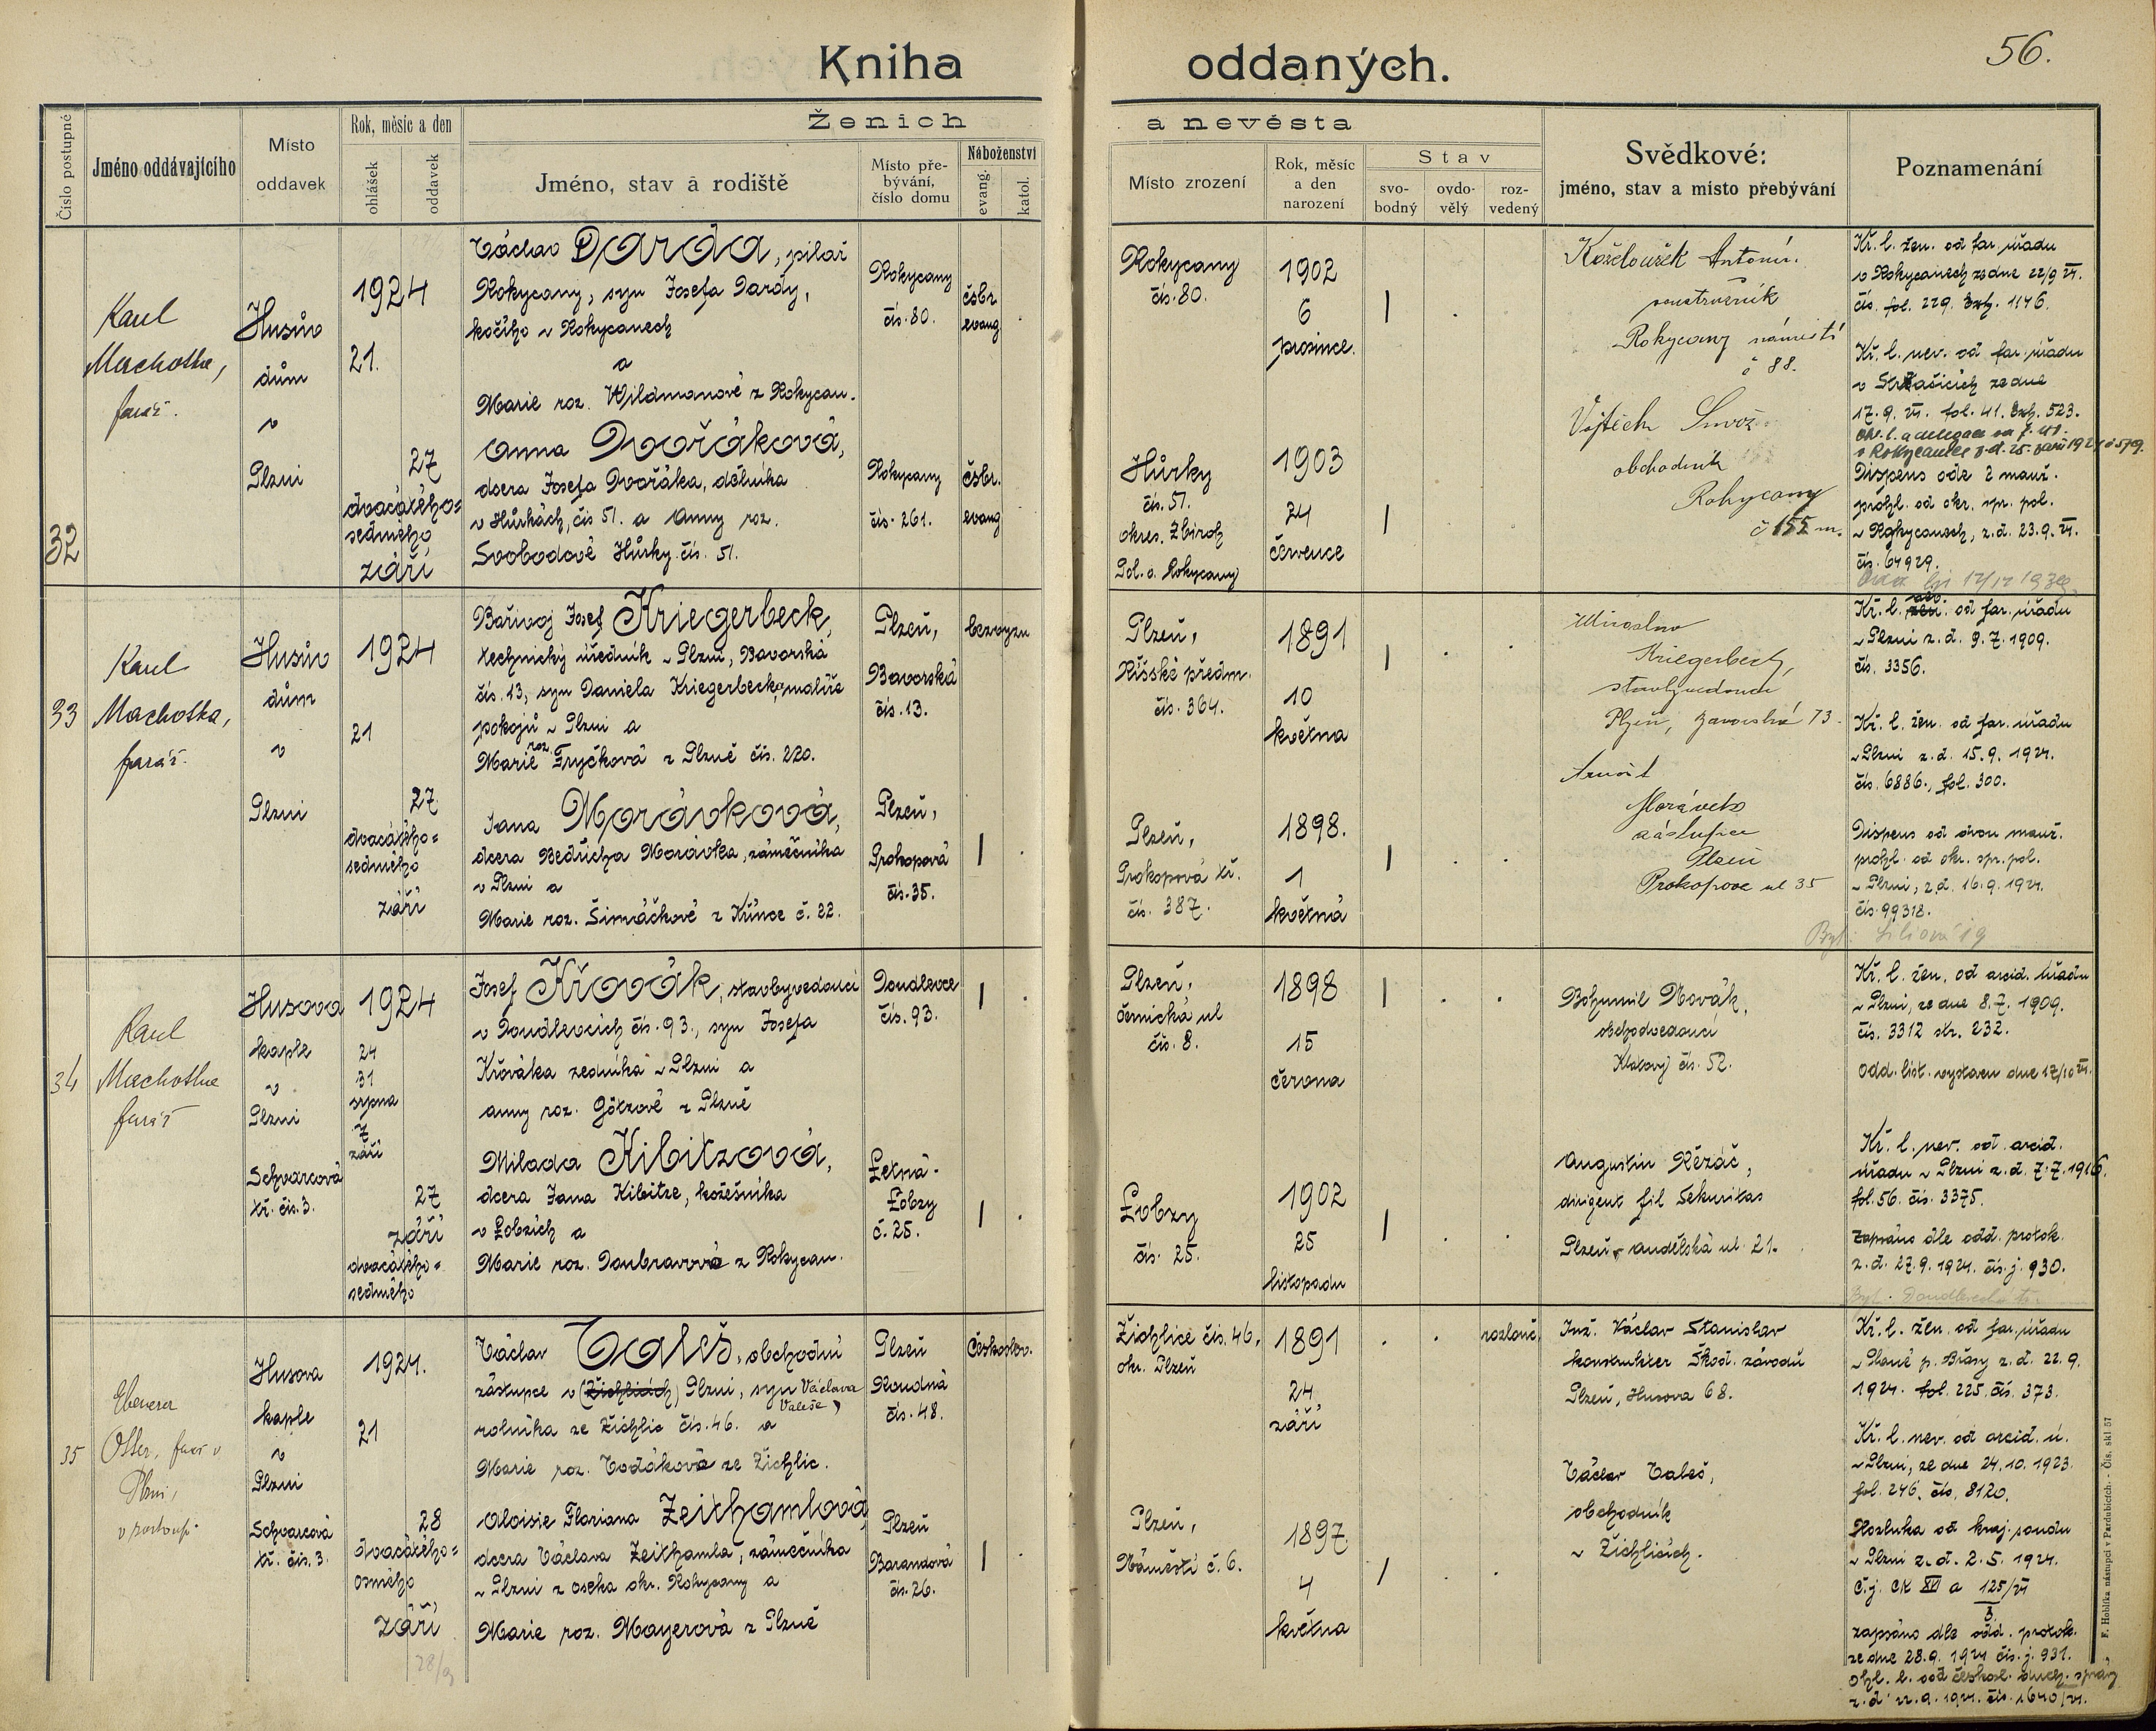 Kniha oddaných.
56.
Číslo postupné
Jméno oddávajícího
Místo
oddavek
Rok, měsíc a den
ohlášek
oddavek
Ženich
a nevěsta
Jméno, stav a rodiště
Místo pře-
bývání,
číslo domu
Náboženství
evang.
katol.
Místo zrození
Rok, měsíc
a den
narození
Stav
svo-
bodný
ovdo-
vělý
roz-
vedený
Svědkové:
jméno, stav a místo přebývání
Poznamenání
32
Karel
Machotka,
farář.
Husův
dům
v
Plzni
1924
21.
27
dvacátého=
sedmého
září
Václav Darda, pilař
Rokycany, syn Josefa Dardy,
kočího v Rokycanech
a
Marie roz. Wildmanové z Rokycan.
Rokycany
čís. 80.
čsbr.
evang
Rokycany
čís. 80.
1902
6
prosince.
Anna Dvořáková,
dcera Josefa Dvořáka, dělníka
v Hůrkách, čís 51. a Anny roz.
Svobodové Hůrky čís. 51.
Rokycany
čís. 261.
čsbr.
evang
Hůrky
čís. 51.
okres. Zbiroh
Pol. o. Rokycany
1903
24
července
Koželoužek Antonín.
Rokycany náměstí
č 88.
Vojtěch
obchodník
Rokycany
č 155
Kř. l. žen. od far. úřadu
v Rokycanech ze dne 22/9 24.
čís. fol. 229. Exh. 1146.
Kř. l. nev. od far. úřadu
v Strašicích ze dne
17. 9. 24. fol. 41. Exh. 523.
Dispens ode 2 manž.
prohl. od okr. spr. pol.
v Rokycanech, z.d. 23.9.24.
čís. 64929.
33
Karel
Machotka,
farář.
Husův
dům
v
Plzni
1924
21
27
dvacátého=
sedmého
září
Bořivoj Josef Kriegerbeck,
technický úředník v Plzni, Bavorská
čís. 13, syn Daniela Kriegerbecka, malíře
pokojů v Plzni a
Marie roz. Fryčková z Plzně čís. 220.
Plzeň,
Bavorská
čís. 13.
bezvyzn
Plzeň,
Říšské předm.
čís. 364.
1891
10
května
Jana Morávková,
dcera Bedřicha Morávka, zámečníka
v Plzni a
Marie roz. Šimáčkové z Křince č. 22.
Plzeň,
Prokopová
čís. 35.
Plzeň,
Prokopová tř.
čís. 387.
1898.
1
května
Miroslav
Kriegerbeck,
stavbyvedoucí
Plzeň, Bavorská 13.
Arnošt
Morávek
zástupce
Plzeň
Prokopova ul 35
Kř. l. nev. od far. úřadu
v Plzni z.d. 9. 7. 1909.
čís. 3356.
Kř. l. žen. od far. úřadu
v Plzni z.d. 15. 9. 1924.
čís. 6886., fol. 300.
Dispens od dvou manž.
prohl. od okr. spr. pol.
v Plzni, z.d. 16. 9. 1924.
čís 99318.
Byt: Liliová 19
34
Karel
Machotka
farář
Husova
kaple
v
Plzni
Schvarcová
tř. čís. 3.
1924
24
31
srpna
7
září
27
září
dvacátého=
sedmého
Josef Křovák, stavbyvedoucí
v Doudlevcích čís. 93., syn Josefa
Křováka zedníka v Plzni a
Anny roz. Götzové z Plzně
Doudlevce
čís. 93.
Plzeň,
černická ul
čís. 8.
1898
15
června
Milada Kibitzová,
dcera Jana Kibitze, kožešníka
v Lobzích a
Marie roz. Doubravová z Rokycan.
Letná-
Lobzy
č. 25.
Lobzy
čís. 25.
1902
25
listopadu
Bohumil Novák,
obchodvedoucí
Klatovy čís. 52.
Augustin Řézáč,
dirigent fil Sekuritas
Plzeň, Andělská ul. 21.
Kř. l. žen. od arcid. úřadu
v Plzni, ze dne 8. 7. 1909.
čís. 3312 str. 232.
Odd. list. vystaven dne 17/10 24.
Kř. l. nev. od arcid.
úřadu v Plzni z.d. 7. 7. 1916.
fol. 56. čís. 3375.
Zapsáno dle odd. protok.
z.d. 27. 9. 1924. čís. j. 930.
35
Ebenezer
Otter, farář v
Plzni,
v zastoup.
Husova
kaple
v
Plzni
Schvarcová
tř. čís. 3.
1924.
21
28
dvacátého=
osmého
září
28/9
Václav Valeš, obchodní
zástupce v (Žichlicích) Plzni, syn Václava
Valeše,
rolníka ze Žichlic čís. 46. a
Marie roz. Vodáková ze Žichlic.
Plzeň
Roudná
čís. 48.
Českoslov.
Žichlice čís. 46.
okr. Plzeň
1891
24
září
rozlouč.
Aloisie Floriana Zeithamlová,
dcera Václava Zeithamla, zámečníka
v Plzni z Oseka okr. Rokycany a
Marie roz. Mayerová z Plzně
Plzeň
Barandová
čís. 26.
Plzeň,
Náměstí č. 6.
1897
4
května
Inž. Václav Stanislav
konstruktér Škod. závodů
Plzeň, Husova 68.
Václav Valeš,
obchodník
v Žichlicích.
Kř. l. žen. od far. úřadu
v Plané p. Břasy z.d. 22. 9.
1924. fol. 225. čís. 373.
Kř. l. nev. od arcid. ú.
v Plzni, ze dne 24. 10. 1923.
fol. 246. čís. 8120.
Rozluka od kraj. soudu
v Plzni z.d. 2. 5. 1924.
Č.j. Ck XVI a 125/24
3
zapsáno dle odd. protok.
ze dne 28. 9. 1924 čís. j. 931.
ohl. l. od českosl. duch. správy
z.d. 22. 9. 1924. čís. 1640/24.
F. Hoblíka nástupci v Pardubicích. - Čís. skl. 57